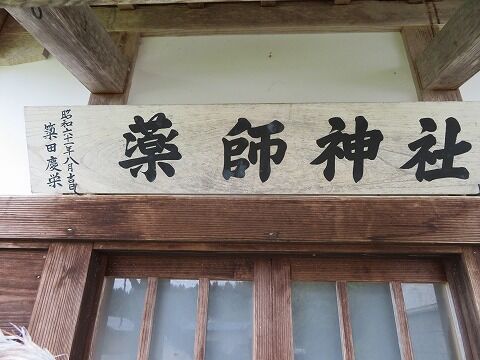 薬師神社
昭和六十一年八月吉日
簗田慶栄